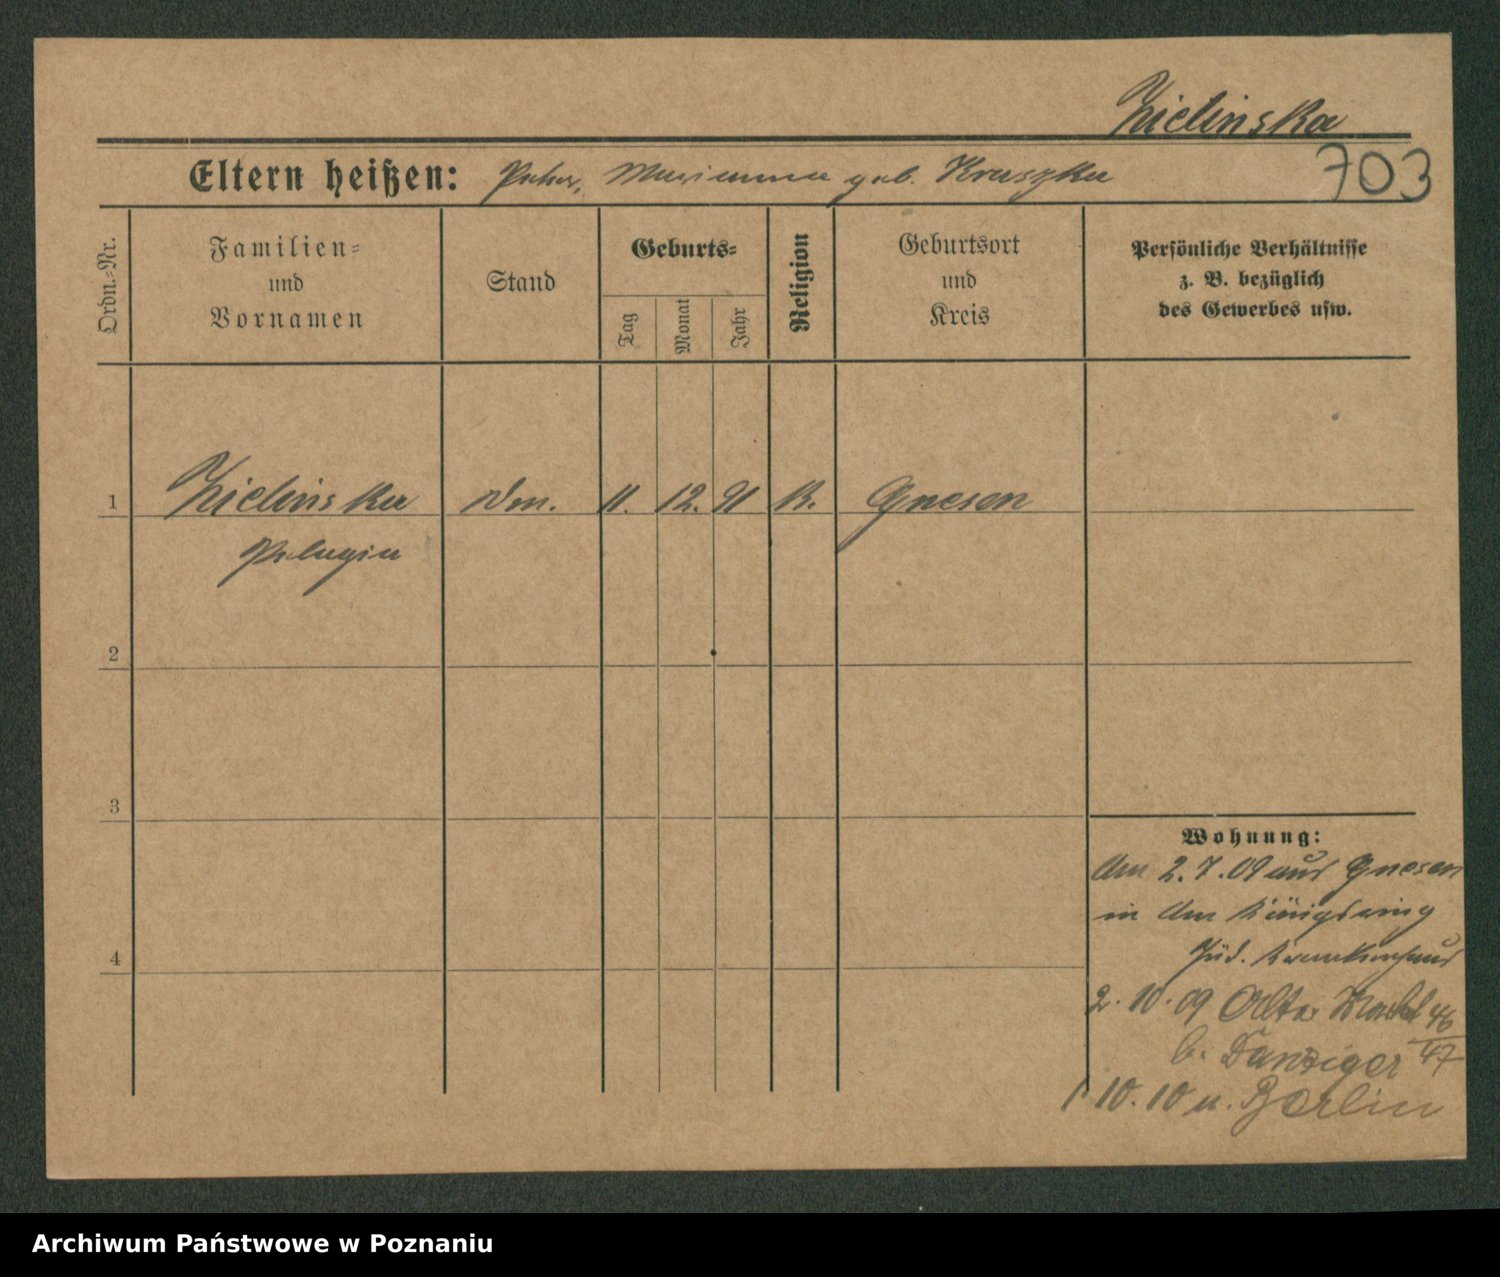 Zielinska
Eltern heißen: Peter, Marianna geb. Kruszka
703
Ordn.-Nr.
Familien-
und
Vornamen
Stand
Geburts-
Tag
Monat
Jahr
Religion
Geburtsort
und
Kreis
Persönliche Verhältnisse
z. B. bezüglich
des Gewerbes usw.
1 Zielinska 11. 12. 91 K. Gnesen
Pelagia
2
3
4
Wohnung:
Am 2.7.09 aus Gnesen
in Am Königsring
Jüd. Krankenhaus
2.10.09 Alter Markt 46/47
b. Danziger
1 10.10 n. Berlin
Archiwum Państwowe w Poznaniu